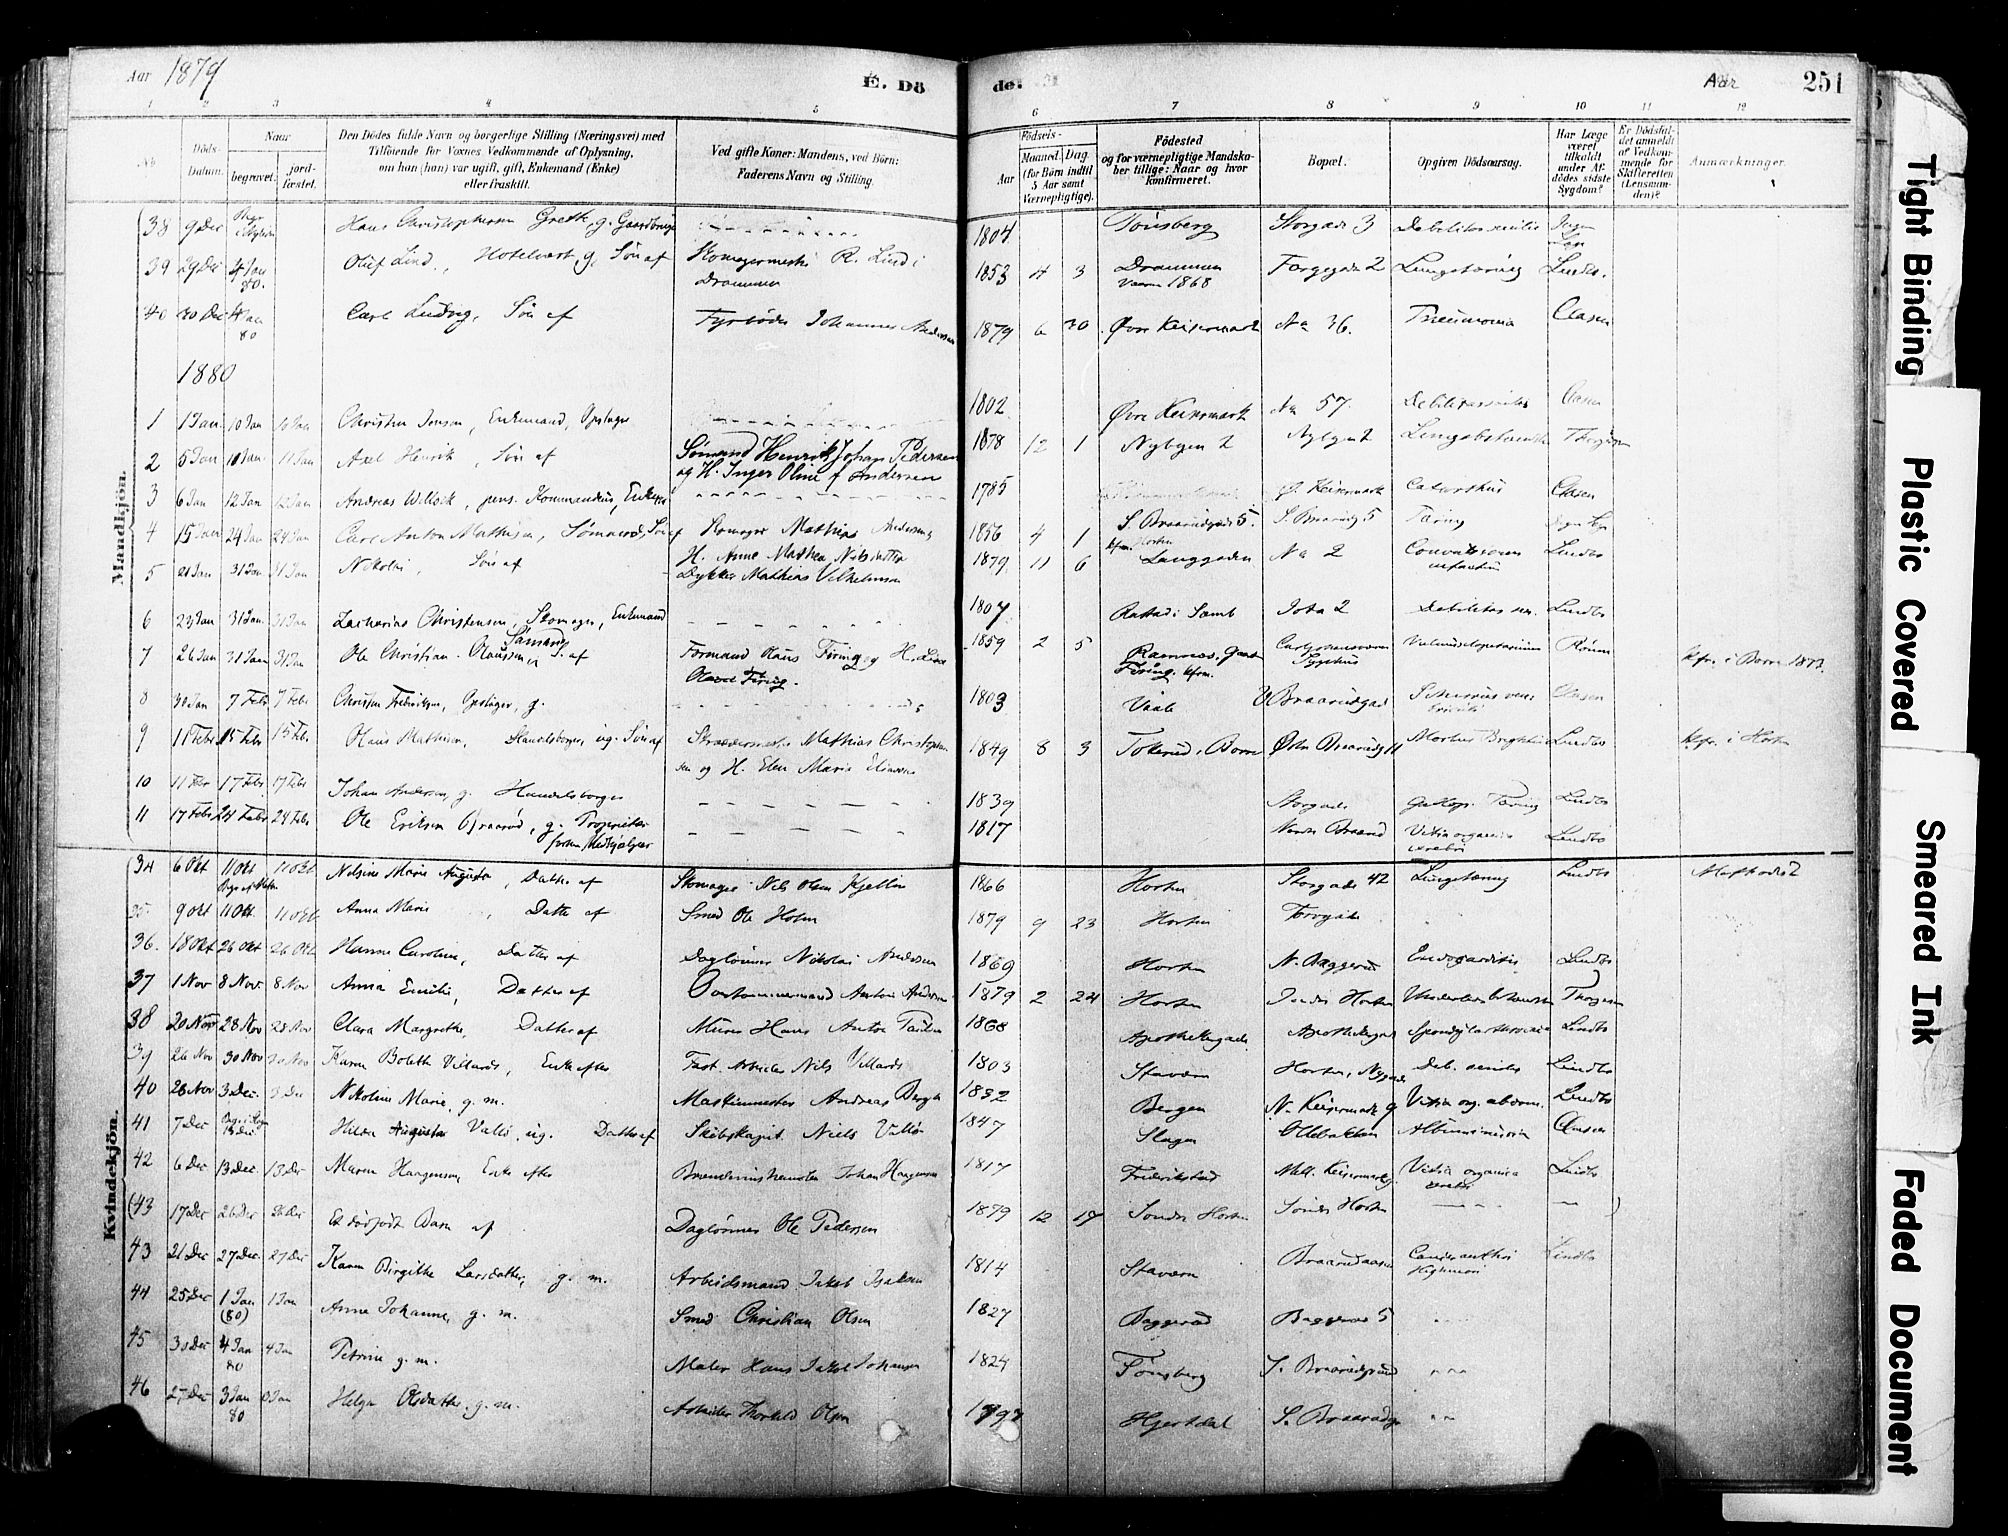 Aar 1879
E. Dö
de.
Aar
251
1 2 3 4 5 6 7 8 9 10 11 12
No
Döds-Datum.
Naar
begravet.
jord-fæstet.
Den Dödes fulde Navn og borgerlige Stilling (Næringsvei) med
Tilföiende for Voxnes Vedkommende af Oplysning,
om hun (han) var ugift, gift, Enkemand (Enke)
eller fraskilt.
Ved gifte Koner: Mandens, ved Börn:
Faderens Navn og Stilling.
Födsels-
Aar
Maaned. Dag.
(for Börn indtil
5 Aar samt
Værnepligtige).
Födested
og for værnepligtige Mandska-
ber tillige: Naar og hvor
konfirmeret.
Bopæl.
Opgiven Dödsaarsag.
Har Læge
været
tilkaldt
under Af-
dödes sidste
Sygdom?
Er Dödsfal-
det anmeldt
af Vedkom-
mende for
Skifteretten
(Lensman-
den)?
Anmærkninger.
Mandkjön.
38 9 Dec Hans Christophersen Greth, g. 1804 Tönsberg Storgade 3 Debilitas senilis
39 29 Dec 4 Jan 80. Oluf Lind, Hotelvært, g. Sön af Skomagermester R. Lind i Drammen 1853 4 3 Drammen 1868 Fargegade 2 Lungetæring Lindbo.
40 30 Dec 4 Jan 80 Carl Ludvig, Sön af Fyrböder Johannes Andersen 1879 6 30 Övre Keisermark No 36. Pneumonia Clasen
1880
1 1 Jan 10 Jan 10 Jan Christen Jensen, Enkemand, Opsynsm 1802 Övre Keisermark No 57. Debilitas senilis Clasen
2 5 Jan 10 Jan 11 Jan Axel Henrik, Sön af Sömand Henrik Johan Pedersen og H. Inger Oline f Andersen 1878 12 1 Nybyen 2 Nybyen 2 Thorgersen
3 6 Jan 12 Jan 12 Jan Andreas Willoch, pens. Kommandeur, Enkem 1785 Ö. Keisermark Catarrhus Clasen
4 15 Jan 24 Jan 24 Jan Carl Anton Mathisen, Sömand, Sön af Skomager Mathias Andersen og H. Anne Mathea Nilsdatter 1856 4 1 S. Braarudgade 5. kfm. Horten S. Braarudg 5 Tæring
5 21 Jan 31 Jan 31 Jan Nikolai, Sön af Dykker Mathias Vilhelmsen 1879 11 6 Langgaden No 2 Convulsiones infantum Lindbo
6 23 Jan 31 Jan 31 Jan Zacharias Christensen, Skomager, Enkemand 1807 Rastad i Semb Jota 2 Debilitas sen. Lindbo
7 26 Jan 31 Jan 31 Jan Ole Christian Olaussen, Sömand S. af Formand Olaus Firing og H. Lina Olavd Firing. 1859 2 5 Ramnes, Gaard Firing. kfrm. Rönne kfr. i Borre 1873.
8 30 Jan 7 Febr 7 Febr Christen Fredriksen, g. 1803 Vaale Braarudgad Clasen
9 11 Febr 15 Febr 15 Febr Olaus Mathisen, Handelsborger, ug. Sön af Skræddermester Mathias Christophersen og H. Elen Marie Eliasen 1849 8 3 Tokerud i Borre Östre Braarudg 11 Morbus Brightii Lindbo kfr. i Horten
10 11 Febr 17 Febr. 17 Febr Johan Andersen, g. Handelsborger 1839 Storgade Galop. Tæring Lindbo
11 17 Febr 24 Febr 24 Febr Ole Eriksen Braaröd, g. Proprietær 1817 Nordre Braarud Vitia organica cerebri Lindbo
Kvindekjön.
34 6 Okt 11 Okt 11 Okt Nilsine Marie Augusta, Datter af Skomager Nils Olsen Kjellin 1866 Horten Storgade 42 Lungetæring Lindbo Methodist
35 9 Okt 11 Okt 11 Okt Anna Marie Datter af Smed Ole Holm 1879 9 23 Horten Torvgade
36. 18 Okt 26 Okt 26 Okt Hanne Caroline, Datter af Daglönner Nikolai Andersen 1869 Horten N. Baggerud Endocarditis Lindbo
37 1 Nov 8 Nov 8 Nov Anna Emilie, Datter af Anton Andersen 1879 2 24 Horten Söndre Horten Thorgersen
38 20 Nov 28 Nov 28 Nov Clara Margrethe, Datter af Murer Hans Anton Paulsen 1868 Apothekergade Apothekergad Lindbo
39 26 Nov 30 Nov 30 Nov Karen Bolette Villards, Enke efter Fast Arbeider Nils Villards 1803 Stavern Horten, Nygade Deb. senilis Lindbo
40 28 Nov 3 Dec 3 Dec Nikoline Marie, g. m. Maskinmester Andreas Berg 1832 Bergen N. Keisermark 9 Vitia org. abdom. Lindbo
41 7 Dec 13 Dec Hilda Augusta Vallö, ug. Datter af Skibskapt. Niels Vallö 1847 Slagen Ollebakken Albuminuria Clasen
42 6 Dec 13 Dec 13 Dec Maren Haagensen, Enke efter Johan Haagensen 1817 Fredrikstad Mell. Keisermarkg. Vitia organica cerebri Lindbo
(43 17 Dec 26 Dec 26 Dec Et dödfödt Barn af Daglönner Ole Pedersen 1879 12 17 Söndre Horten Söndre Horten )
43 21 Dec 27 Dec 27 Dec Karen Birgitte Larsdatter, g. m. Arbeidsmand Jakob Isaksen 1814 Stavern Braarudaasen Lindbo
44 25 Dec 1 Jan (80) 1 Jan Anne Johanne, g. m. Smed Christian Olsen 1827 Baggerud Baggerud 5
45 30 Dec 4 Jan 80 4 Jan Petrine g. m. Maler Hans Jakob Johansen 1824 Tönsberg S. Braarudgade
46 27 Dec 3 Jan 80 3 Jan Helga Olsdatter, g. m. Arbeider Thorkild Olsen 1797 Hjertdal S. Braarudg
Tight Binding
Plastic Covered
Smeared Ink
Faded Document